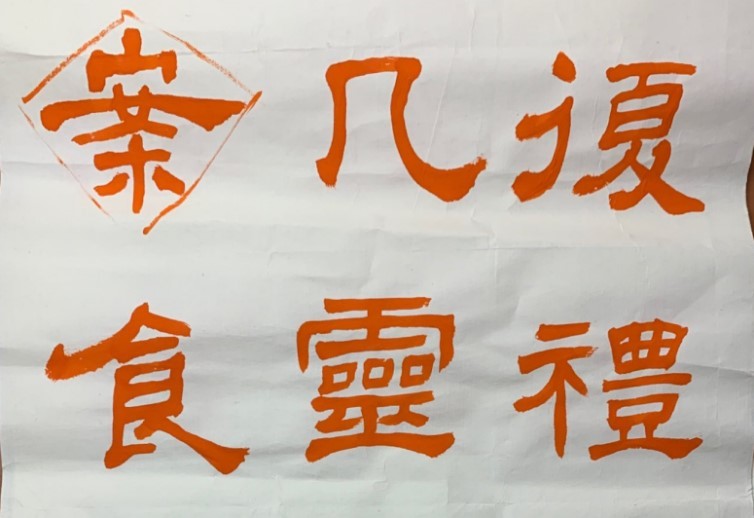 復禮
几靈
案食